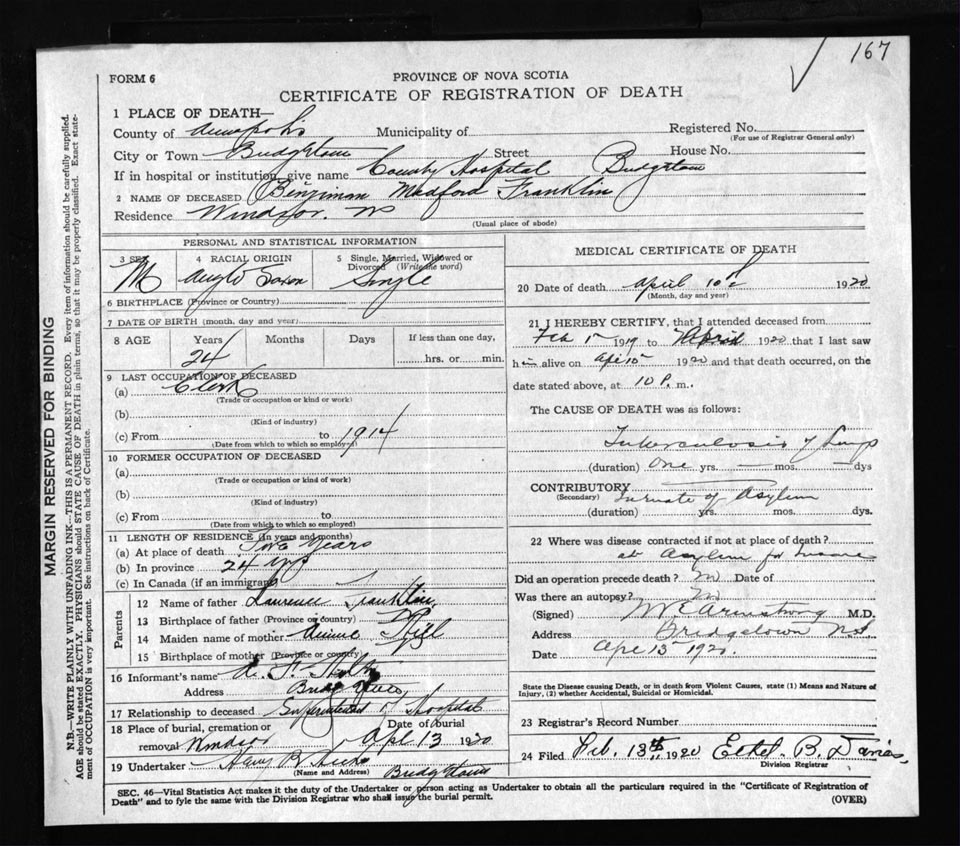 167
FORM 6
PROVINCE OF NOVA SCOTIA
CERTIFICATE OF REGISTRATION OF DEATH
1 PLACE OF DEATH—
County of Annapolis Municipality of Registered No.
(For use of Registrar General only)
City or Town Bridgetown Street House No.
If in hospital or institution, give name County Hospital Bridgetown
2 NAME OF DECEASED Binjiman Medford Franklin
Residence Windsor. NS
(Usual place of abode)
PERSONAL AND STATISTICAL INFORMATION
3 SEX 4 RACIAL ORIGIN 5 Single, Married, Widowed or Divorced (Write the word)
M Anglo Saxon Single
6 BIRTHPLACE (Province or Country)
7 DATE OF BIRTH (month, day and year)
8 AGE Years Months Days If less than one day,
24 hrs. or min.
9 LAST OCCUPATION OF DECEASED
(a) Clerk
(Trade or occupation or kind or work)
(b)
(Kind of industry)
(c) From to 1914
(Date from which to which so employed)
10 FORMER OCCUPATION OF DECEASED
(a)
(Trade or occupation or kind of work)
(b)
(Kind of industry)
(c) From to
(Date from which to which so employed)
11 LENGTH OF RESIDENCE (In years and months)
(a) At place of death Two Years
(b) In province 24 yrs
(c) In Canada (if an immigrant)
Parents
12 Name of father Laurence Franklin
13 Birthplace of father (Province or country)
14 Maiden name of mother Annie
15 Birthplace of mother (Province or country)
16 Informant's name
Address Bridgetown
17 Relationship to deceased Superintendent of Hospital
18 Place of burial, cremation or removal Windsor Date of burial Apl 13 1920
19 Undertaker Harry B Hicks
(Name and Address) Bridgetown
MEDICAL CERTIFICATE OF DEATH
20 Date of death April 10th 1920
(Month, day and year)
21 I HEREBY CERTIFY, that I attended deceased from
Feb 1st 1919 to April 1920 that I last saw
him alive on Apr 10 1920 and that death occurred, on the
date stated above, at 10 P. m.
The CAUSE OF DEATH was as follows:
Tuberculosis of Lungs
(duration) One yrs. — mos. — dys
CONTRIBUTORY
(Secondary) Inmate of Asylum
(duration) yrs. mos. dys.
22 Where was disease contracted if not at place of death?
at Asylum for Insane
Did an operation precede death? No Date of
Was there an autopsy? No
(Signed) W E Armstrong M.D.
Address Bridgetown N.S.
Date Apr 13 1920.
State the Disease causing Death, or in death from Violent Causes, state (1) Means and Nature of
Injury, (2) whether Accidental, Suicidal or Homicidal.
23 Registrar's Record Number
24 Filed Feb. 13th 1920 Ethel B. Davies,
Division Registrar
SEC. 46—Vital Statistics Act makes it the duty of the Undertaker or person acting as Undertaker to obtain all the particulars required in the "Certificate of Registration of
Death" and to fyle the same with the Division Registrar who shall issue the burial permit.
(OVER)
MARGIN RESERVED FOR BINDING
N.B.—WRITE PLAINLY WITH UNFADING INK—THIS IS A PERMANENT RECORD. Every item of information should be carefully supplied.
AGE should be stated EXACTLY. PHYSICIANS should STATE CAUSE OF DEATH in plain terms, so that it may be properly classified. Exact statement of OCCUPATION is very important. See instructions on back of Certificate.